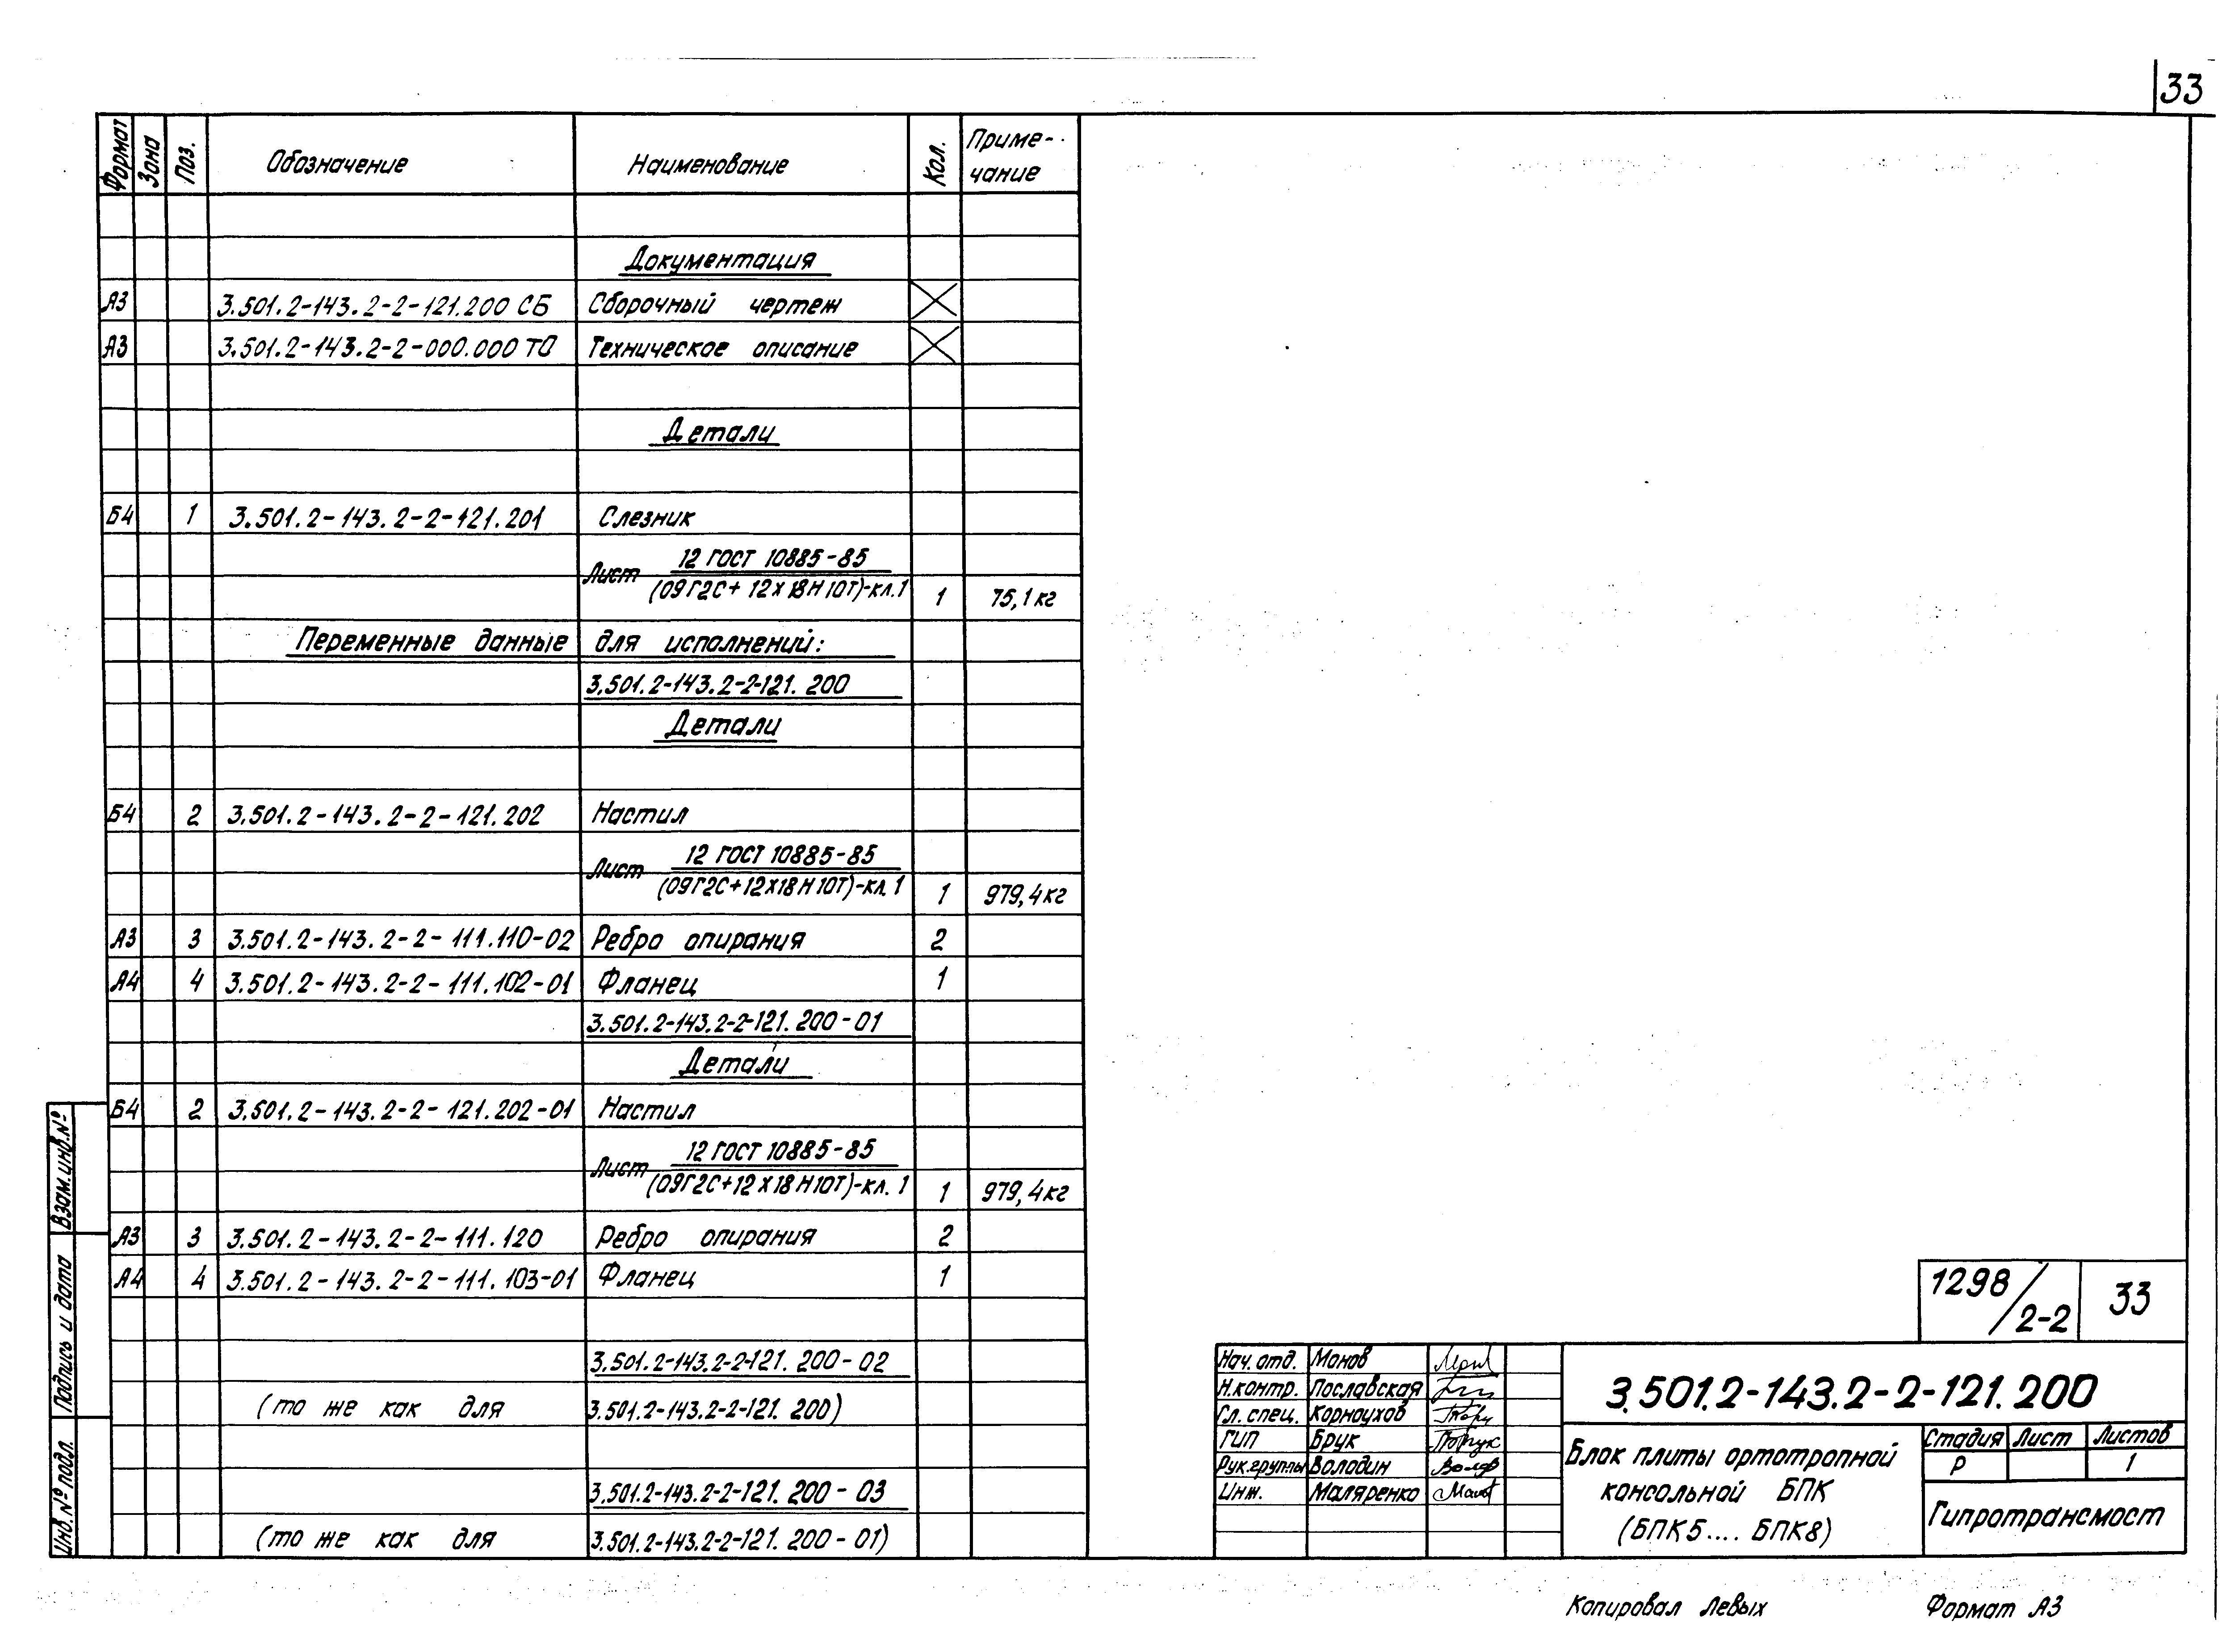 33
Формат Зона Поз. Обозначение Наименование Кол. Приме-чание
Документация
А3 3.501.2-143.2-2-121.200 СБ Сборочный чертеж
А3 3.501.2-143.2-2-000.000 ТО Техническое описание
Детали
Б4 1 3.501.2-143.2-2-121.201 Слезник
Лист 12 ГОСТ 10885-85
(09Г2С+12Х18Н10Т)-кл.1 1 75,1кг
Переменные данные для исполнений:
3.501.2-143.2-2-121.200
Детали
Б4 2 3.501.2-143.2-2-121.202 Настил
Лист 12 ГОСТ 10885-85
(09Г2С+12Х18Н10Т)-кл.1 1 979,4кг
А3 3 3.501.2-143.2-2-111.110-02 Ребро опирания 2
А4 4 3.501.2-143.2-2-111.102-01 Фланец 1
3.501.2-143.2-2-121.200-01
Детали
Б4 2 3.501.2-143.2-2-121.202-01 Настил
Лист 12 ГОСТ 10885-85
(09Г2С+12Х18Н10Т)-кл.1 1 979,4кг
А3 3 3.501.2-143.2-2-111.120 Ребро опирания 2
А4 4 3.501.2-143.2-2-111.103-01 Фланец 1
3.501.2-143.2-2-121.200-02
(то же как для 3.501.2-143.2-2-121.200)
3.501.2-143.2-2-121.200-03
(то же как для 3.501.2-143.2-2-121.200-01)
Взам.инв.№
Подпись и дата
Инв.№ подл.
1298/2-2 33
Нач.отд. Монов
Н.контр. Пославская
Гл.спец. Корноухов
ГИП Брук
Рук.группы Володин
Инж. Маляренко
3.501.2-143.2-2-121.200
Блок плиты ортотропной
консольной БПК
(БПК5.... БПК8)
Стадия Лист Листов
Р 1
Гипротрансмост
Копировал Левых Формат А3